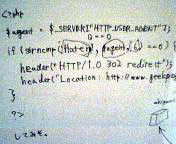 <?php
$agent = $_SERVER["HTTP_USER_AGENT"];
0 == 0
if (strncmp("Hatena", $agent, 6) == 0) {
header("HTTP/1.0 302 redirect");
header("Location: http://www.geekpage
}
?>
してみる。